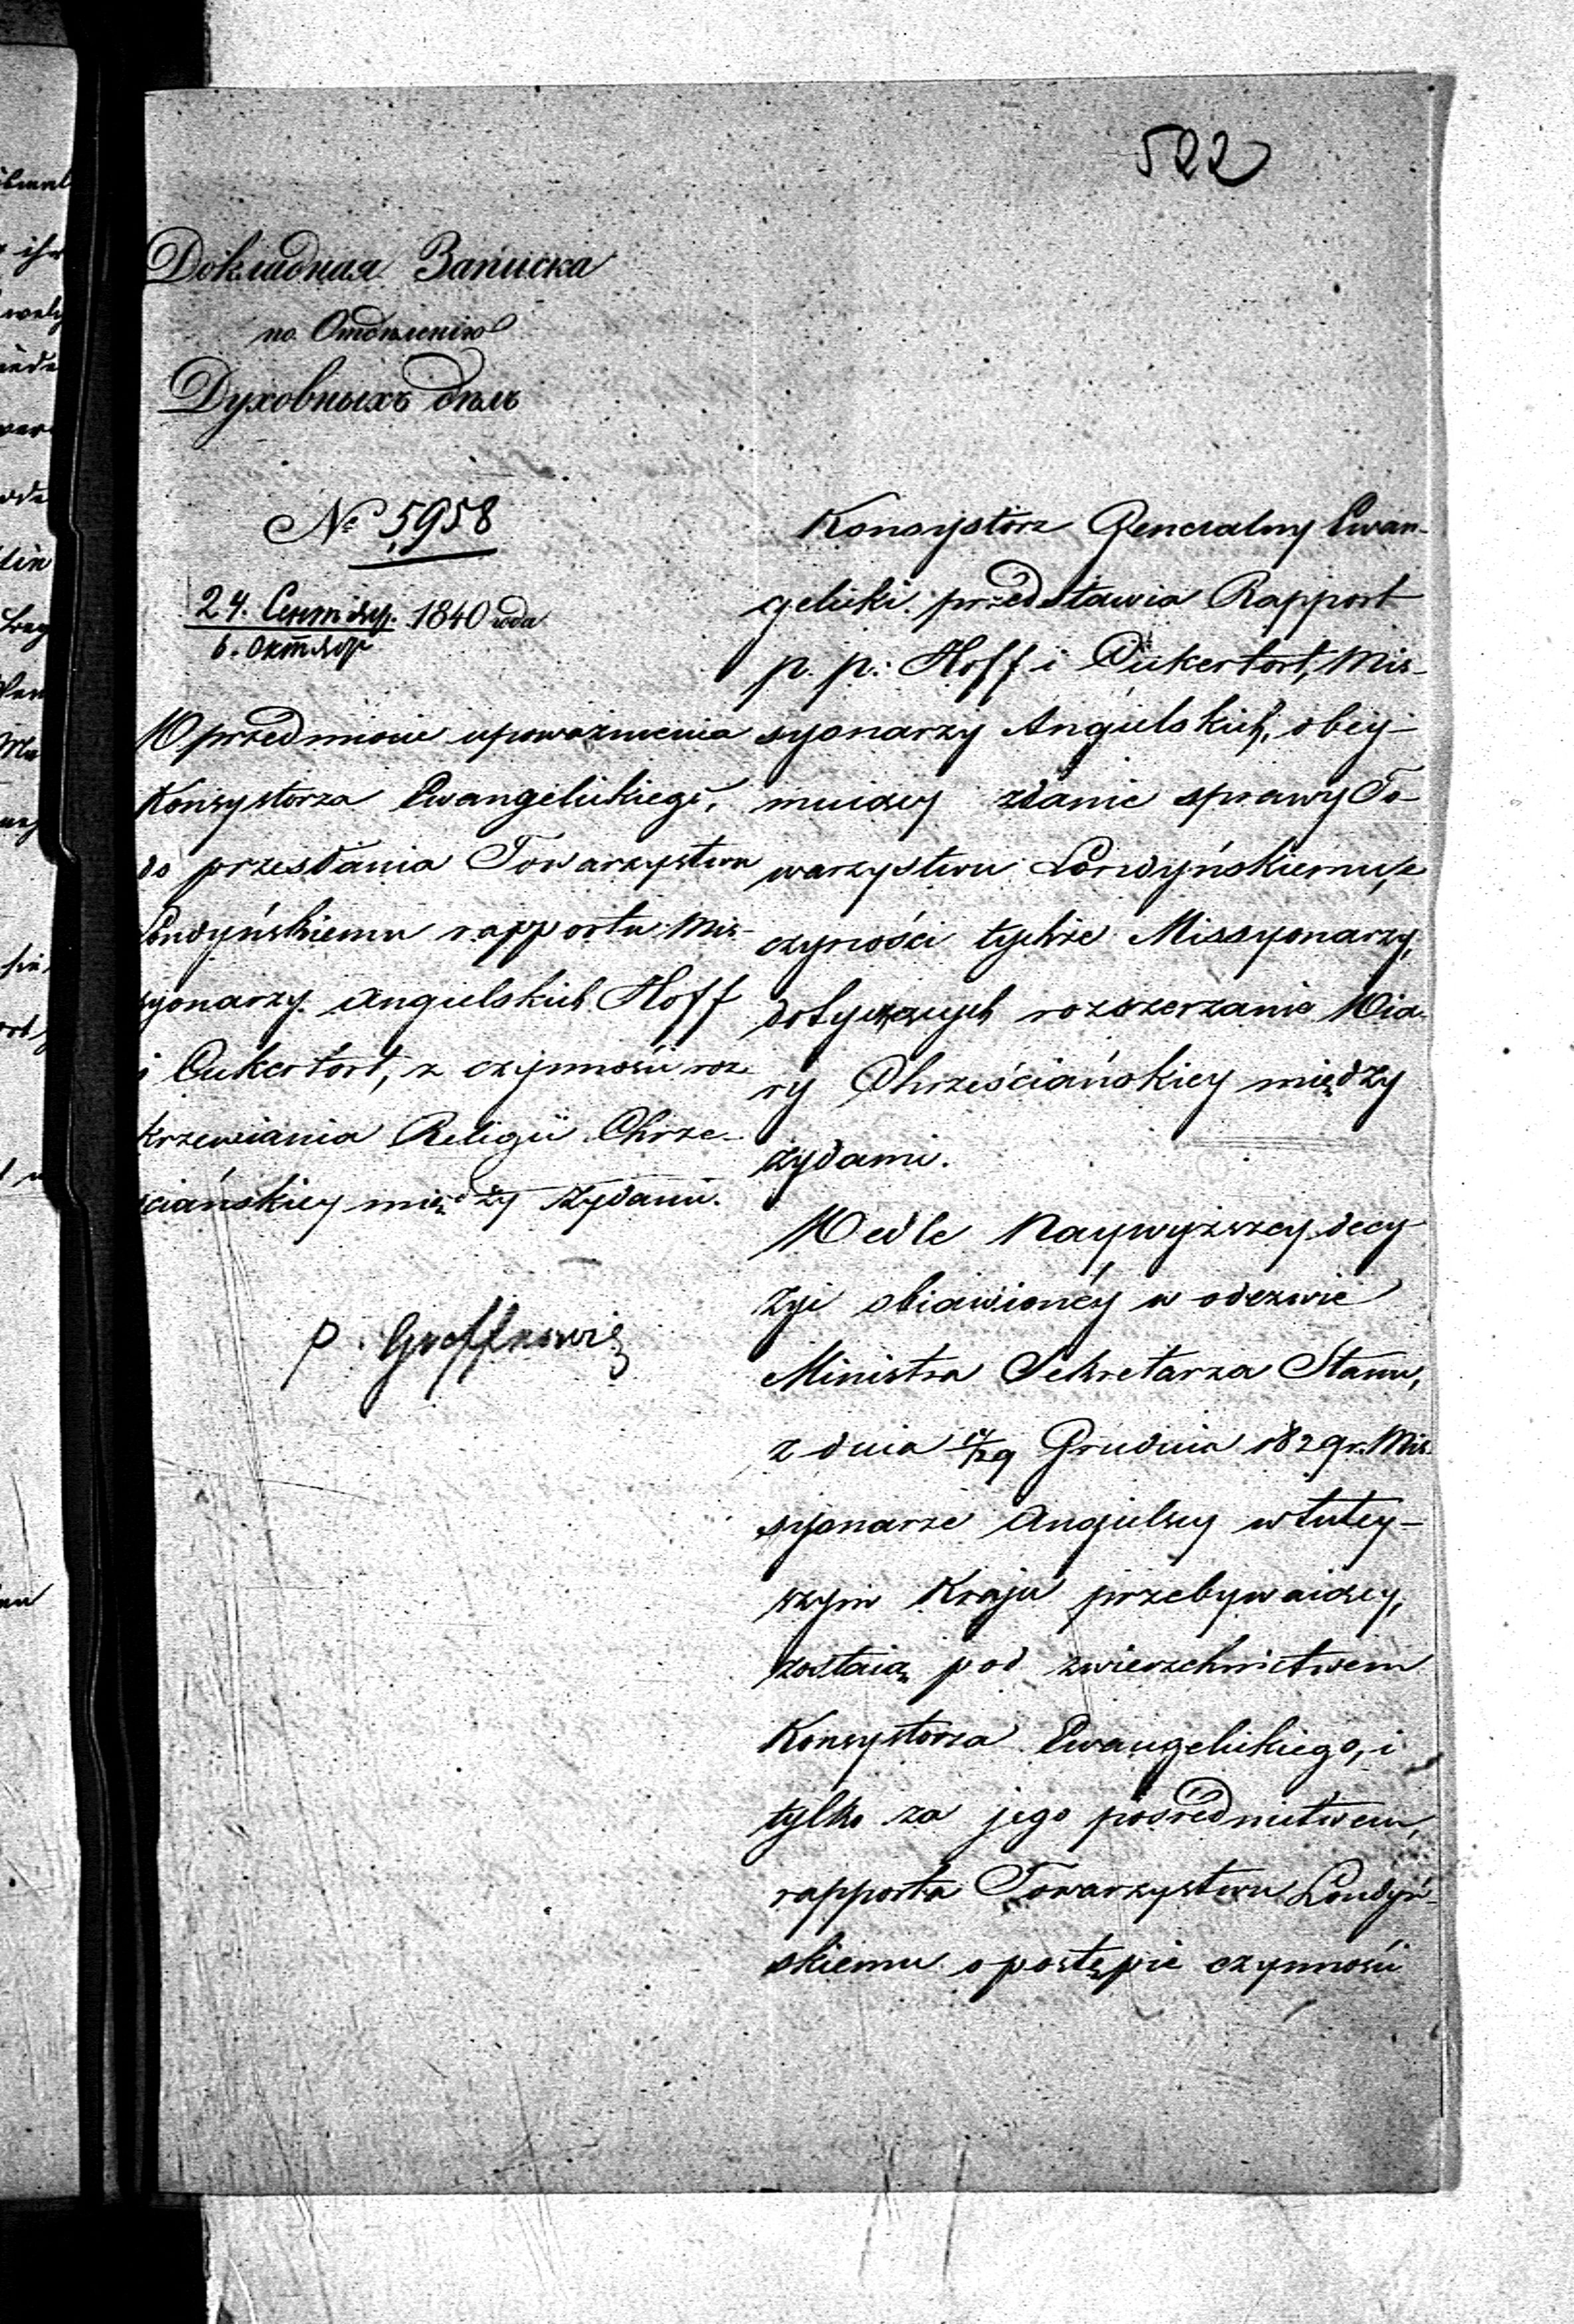 522
Докладная Записка
по Отдѣленію
Духовныхъ дѣлъ
№ 5958
24. Сентябр. 1840 года
6. Октябр
W przedmiocie upoważnienia
Konsystorza Ewangelickiego,
do przesłania Towarzystwu
Londyńskiemu rapportu Mis-
syonarzy Angielskich Hoff
i Cukertort, z czynności roz-
krzewiania Religii Chrze-
ściańskiey między Żydami.
P.
Konsystorz Generalny Ewan-
gelicki przedstawia Rapport
p. p: Hoff i Cukertort, Mis-
syonarzy Angielskich, obey-
muiący zdanie sprawy To-
warzystwu Londyńskiemu, z
czyności tychże Missyonarzy,
dotyczących rozszerzania Wia-
ry Chrześciańskiey między
żydami.
Wedle Naywyższey decy
zyi obiawioney w odezwie
Ministra Sekretarza Stanu,
z dnia 17/29 Grudnia 1829 r. Mis-
syonarze Angielscy w tutey-
szym Kraju przebywaiący,
zostaią pod zwierzchnictwem
Konsystorza Ewangelickiego, i
tylko za jego pośrednictwem,
rapporta Towarzystwu Londyń-
skiemu o postępie czynności